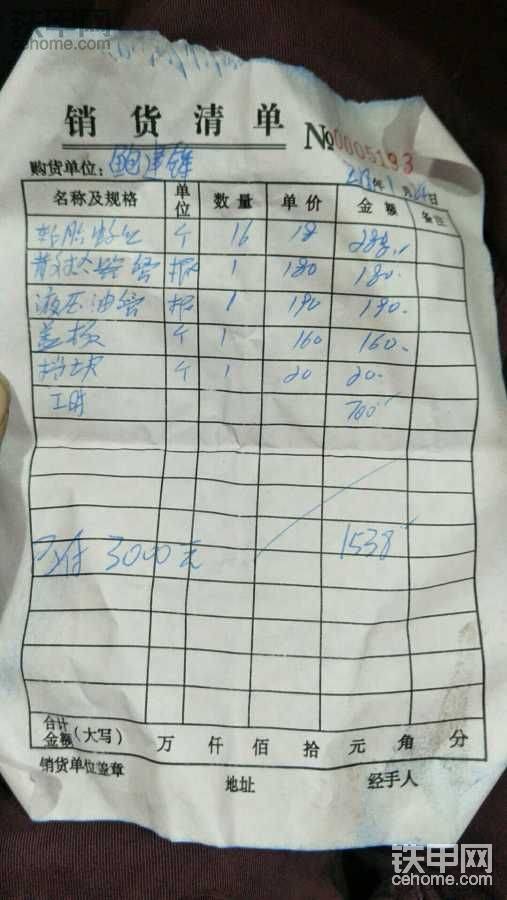 铁甲网
cehome.com
销货清单 №0005193
购货单位：
年1月 日
名称及规格 单位 数量 单价 金额 备注
轮胎 个 16 18 288
根 1 180 180
液压油管 根 1 190 190
盖板 个 1 160 160
挡皮 个 1 20 20
工时 700
1538
已付 3000元
合计金额（大写） 万 仟 佰 拾 元 角 分
销货单位盖章 地址 经手人
铁甲网
cehome.com